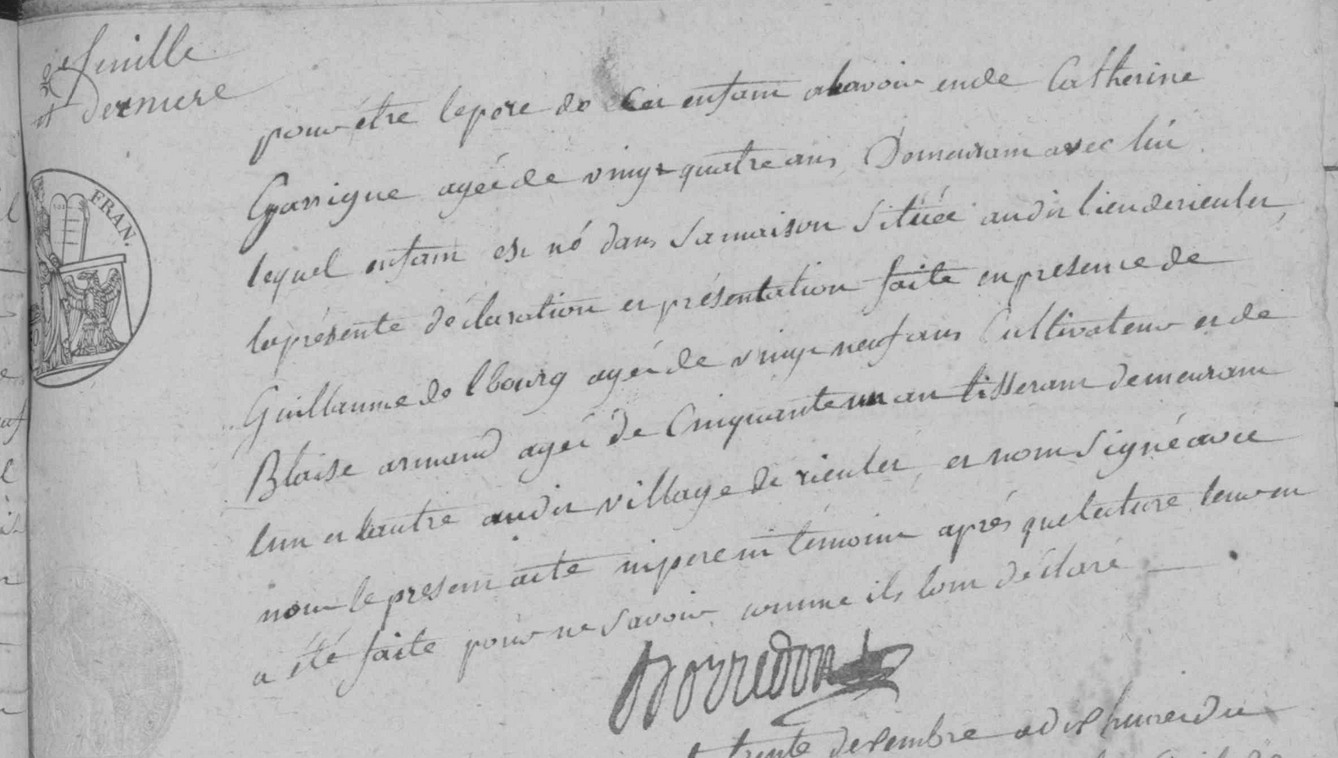 2e feuille
et derniere
FRAN.
pour être le pere de cet enfant a lavoir eu de Catherine
Garrigue agée de vingt quatre ans, Demeurant avec lui
lequel enfant est né dans sa maison située audit lieu de rieuler,
la présente déclaration et présentation faite en presence de
Guillaume delbourg agée de vingt neuf ans Cultivateur et de
Blaise armand agée de Cinquante un an tisseram demeurant
lun et lautre audit village de rieuler, et nont signé avec
nous le present acte ni pere ni témoins aprés que lecture leur en
a été faite pour ne savoir comme ils lont déclaré
Borredon
trente desembre a dix hures du